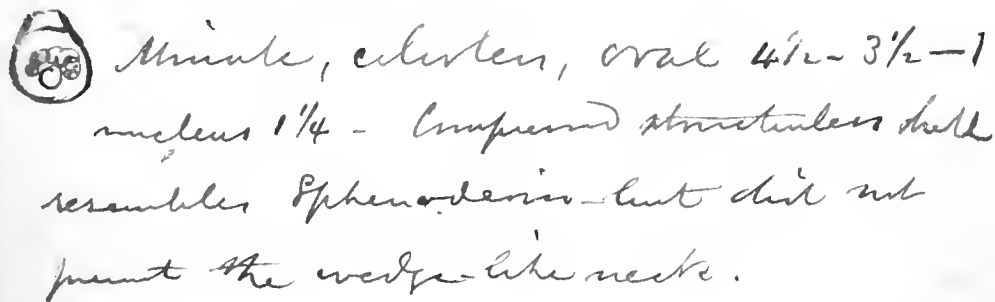 Minute, colorless, oval 4½ - 3½ — 1
nucleus 1¼ - Compressed structureless shell
resembles Sphenoderia - but did not
present the wedge-like neck.